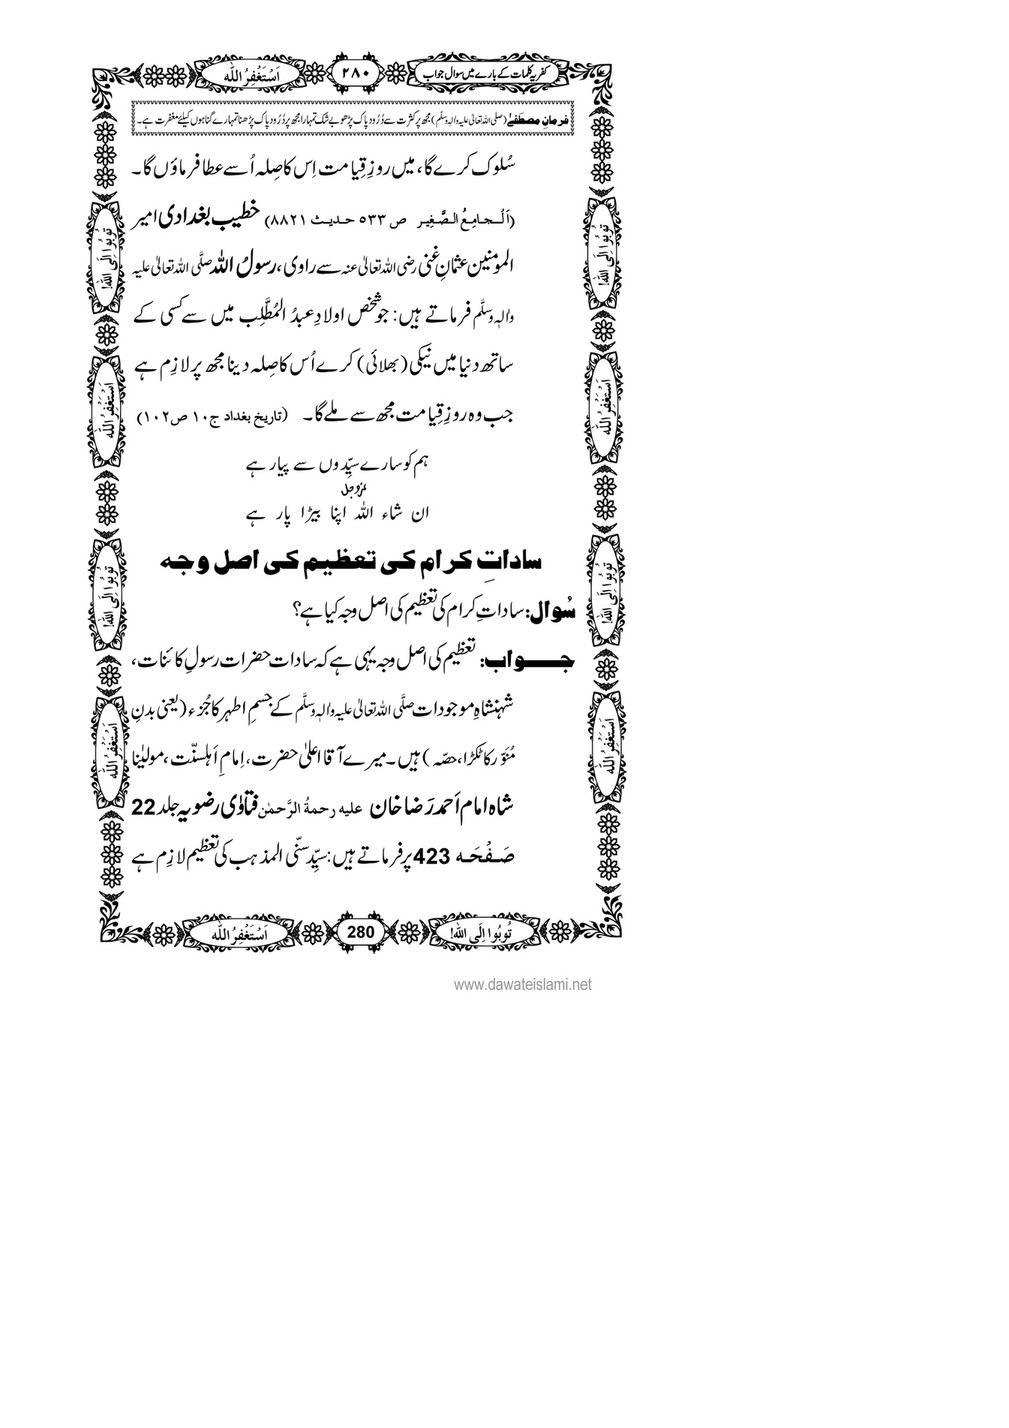 کفریہ کلمات کے بارے میں سوال جواب
۲۸۰
اَسْتَغْفِرُ اللّٰه
فرمانِ مصطَفٰے (صلی اللہ تعالیٰ علیہ واٰلہ وسلّم) مجھ پر کثرت سے دُرُود پاک پڑھو بے شک تمہارا مجھ پر دُرُود پاک پڑھنا تمہارے گناہوں کیلئے مغفرت ہے۔
سُلوک کرے گا، میں روزِ قِیامت اِس کا صِلہ اُسے عطا فرماؤں گا۔
(اَلْجامِعُ الصَّغِیر ص ۵۳۳ حدیث ۸۸۲۱) خطیب بغدادی امیر
المومنین عثمانِ غنی رضی اللہ تعالیٰ عنہ سے راوی، رسولُ اللہ صلَّی اللہ تعالیٰ علیہ
واٰلہٖ وسلَّم فرماتے ہیں: جو شخص اولادِ عبدُ المُطَّلِب میں سے کسی کے
ساتھ دنیا میں نیکی (بھلائی) کرے اُس کا صِلہ دینا مجھ پر لازِم ہے
جب وہ روزِ قِیامت مجھ سے ملے گا۔ (تاریخ بغداد ج۱۰ ص۱۰۲)
ہم کو سارے سیِّدوں سے پیار ہے
عزوجل
ان شاء اللہ اپنا بیڑا پار ہے
ساداتِ کرام کی تعظیم کی اصل وجہ
سُوال: ساداتِ کرام کی تعظیم کی اصل وجہ کیا ہے؟
جواب: تعظیم کی اصل وجہ یہی ہے کہ سادات حضرات رسولِ کائنات،
شہنشاہِ موجودات صلَّی اللہ تعالیٰ علیہ واٰلہٖ وسلَّم کے جسمِ اطہر کا جُزء (یعنی بدنِ
مُنَوَّر کا ٹکڑا، حصّہ) ہیں۔ میرے آقا اعلیٰ حضرت، اِمامِ اَہلسنّت، مولیٰنا
شاہ امام اَحمد رَضا خان علیہ رحمۃُ الرَّحمٰن فتاوٰی رضویہ جلد 22
صَفْحَہ 423 پر فرماتے ہیں: سیِّد سنّی المذہب کی تعظیم لازِم ہے
تُوبُوا اِلَی اللّٰه!
اَسْتَغْفِرُ اللّٰه
تُوبُوا اِلَی اللّٰه!
اَسْتَغْفِرُ اللّٰه
تُوبُوا اِلَی اللّٰه!
اَسْتَغْفِرُ اللّٰه
تُوبُوا اِلَی اللّٰه!
اَسْتَغْفِرُ اللّٰه
تُوبُوا اِلَی اللّٰه!
280
اَسْتَغْفِرُ اللّٰه
www.dawateislami.net